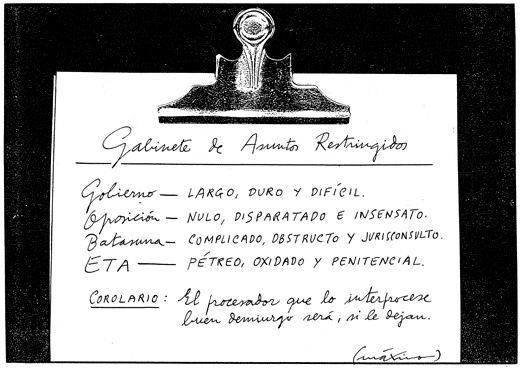 Gabinete de Asuntos Restringidos
Gobierno — LARGO, DURO Y DIFÍCIL.
Oposición — NULO, DISPARATADO E INSENSATO.
Batasuna — COMPLICADO, OBSTRUCTO Y JURISCONSULTO.
ETA — PÉTREO, OXIDADO Y PENITENCIAL.
COROLARIO: El procesador que lo interprocese
buen demiurgo será, si le dejan.
(máximo)